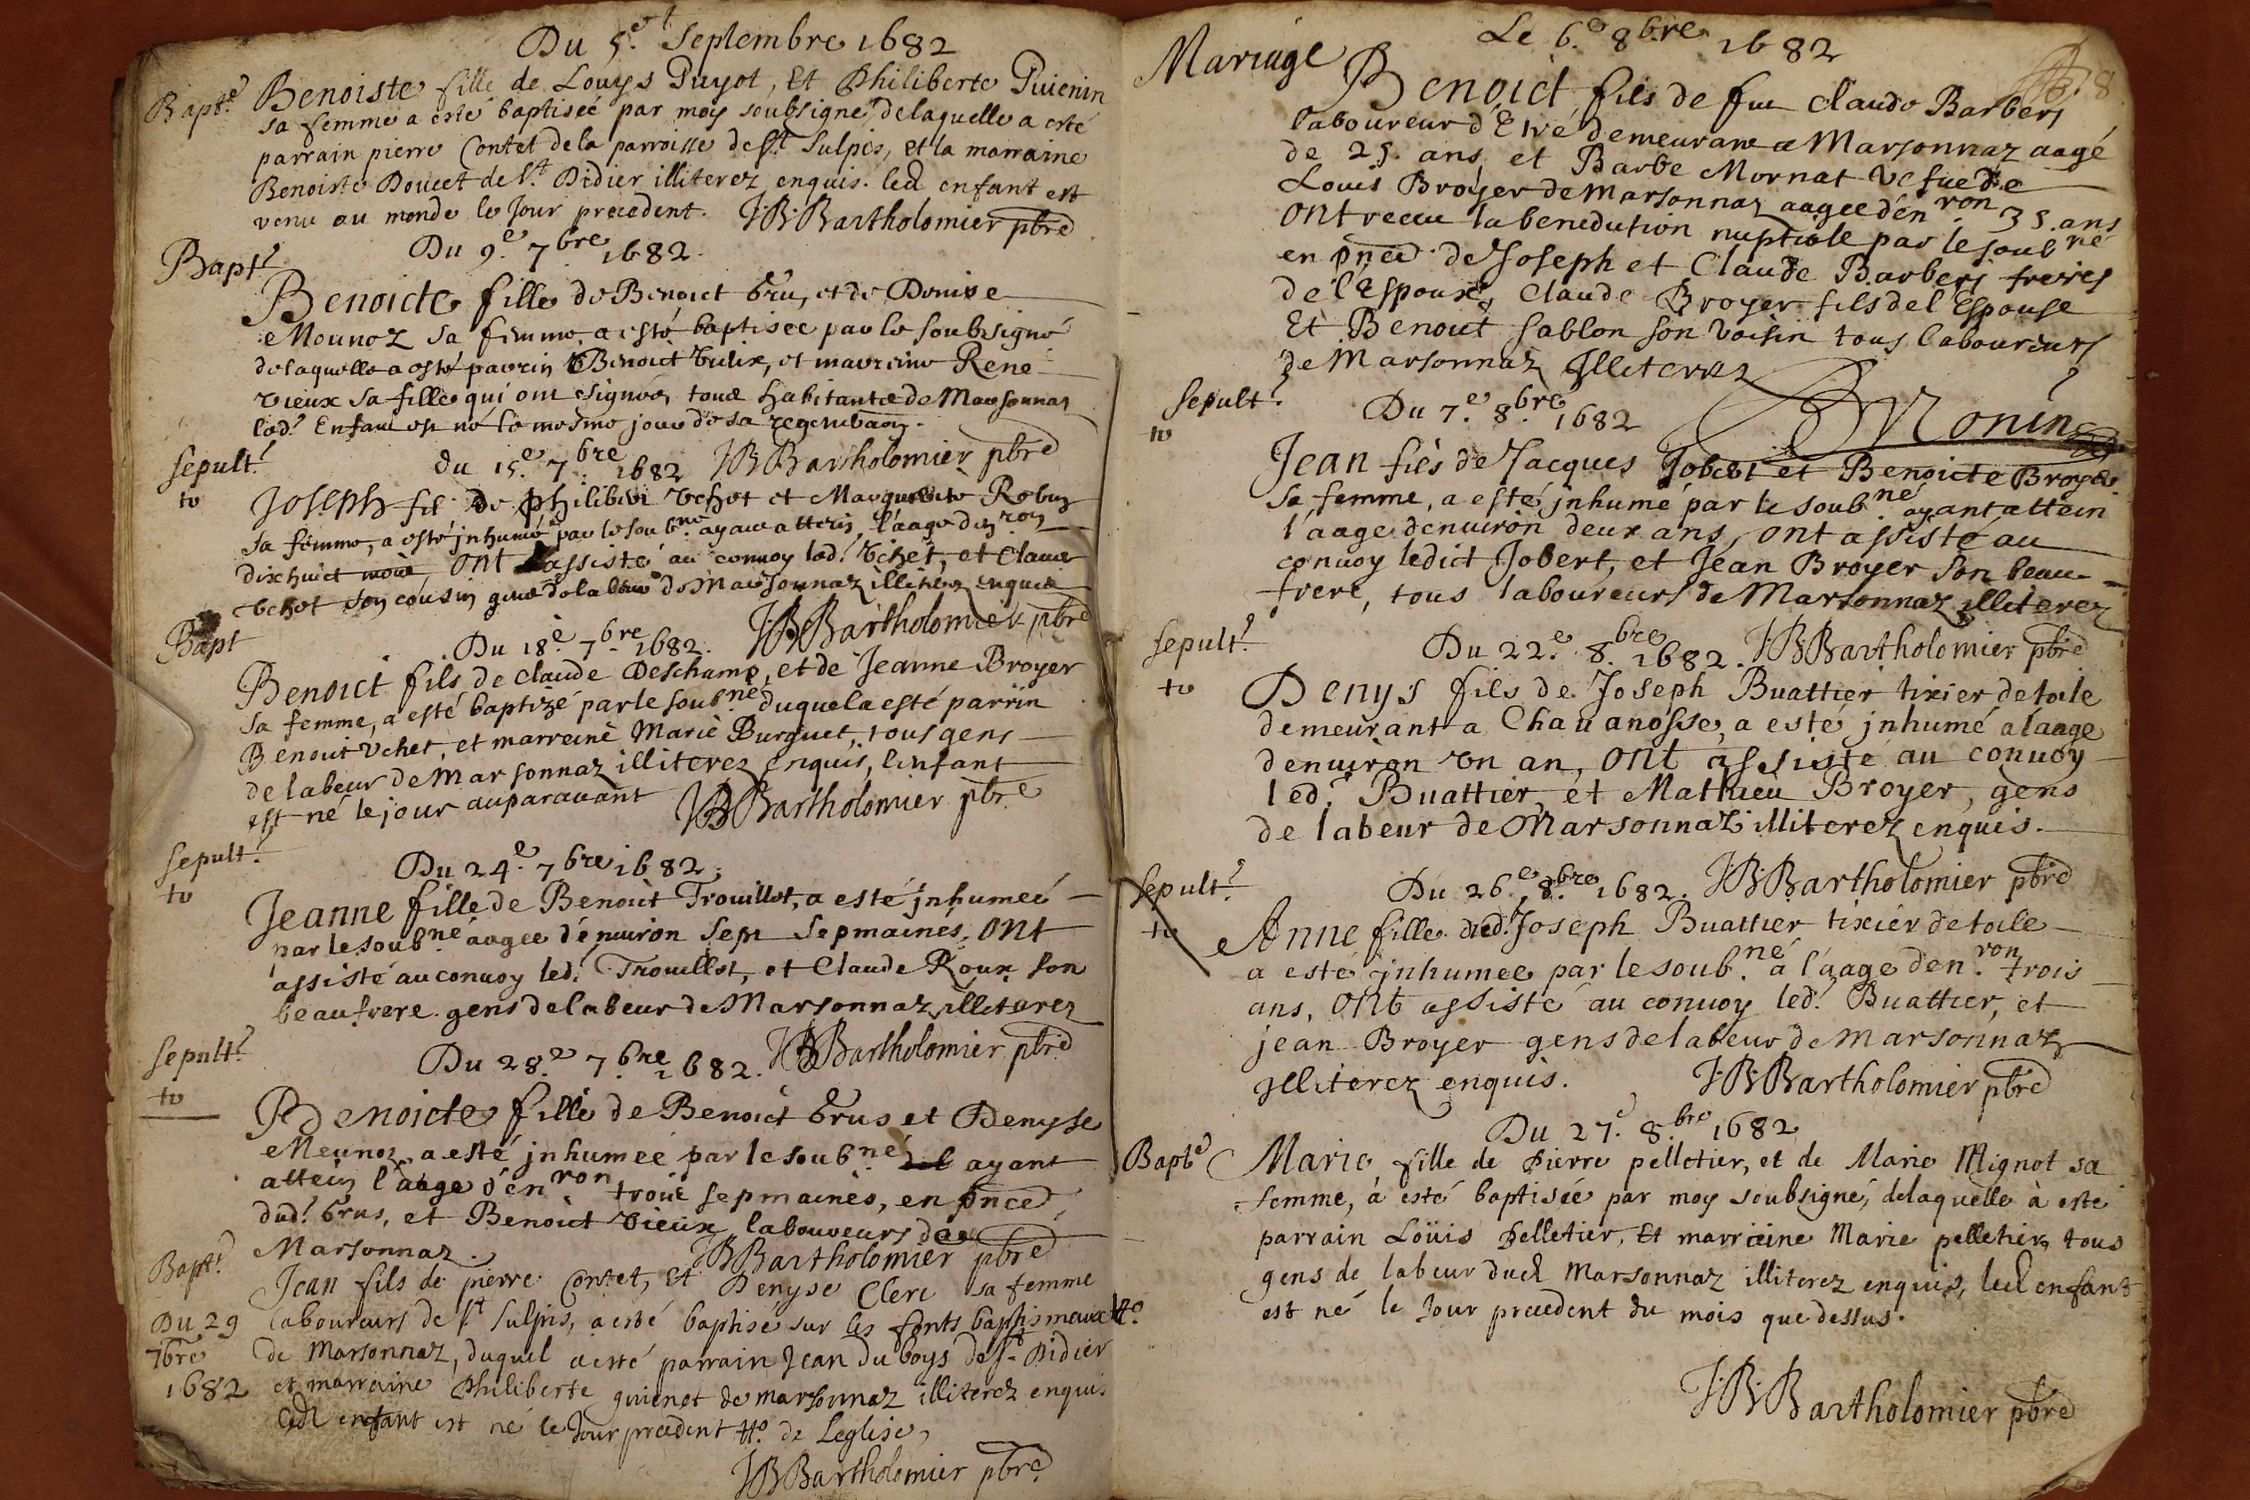 Du 5.e Septembre 1682
Bapt.e Benoiste fille de Louys Guyot, Et Philiberte Guienin
sa femme a esté baptiseé par moy soubsigné, delaquelle a esté
parrain pierre Contet dela parroisse de St. Sulpis, et la marraine
Benoiste Doucet de St. Didier illiterez enquis. led enfant est
venu au monde le Jour precedent. JBBartholomier pbre
Bapt.e Du 9.e 7bre 1682.
Benoicte fille de Benoict Bru, et de Denise
Mounoz sa femme a esté baptisee par le soubsigné
delaquelle a esté parrin Benoict Vulix, et marreine Rene
vieux sa fille qui ont signés, tous habitants de Marsonnaz
led.t Enfant est né le mesme jour de sa
sepult.e du 15.e 7bre 1682 JBBartholomier pbre
to Joseph fil de philibert Vchet et Marguerite Robin
sa femme, a esté jnhumé par le soub.né ayant attein l'aage den.ron
dixhuict mois, ont assisté au conuoy led.t Vchet, et Claude
Vchet son cousin gens de labeur de Marsonnaz illiterez enquis
Bapt Du 18.e 7bre 1682. JBBartholomier pbre
Benoict fils de claude Deschamp, et de Jeanne Broyer
sa femme, a esté baptizé par le soub.né duquel a esté parrin
Benoit Vchet, et marreine Marie Burguet, tous gens
de labeur de Marsonnaz illiterez enquis, l'infant
est né le jour auparauant JBBartholomier pbre
sepult.e
to Du 24.e 7bre 1682.
Jeanne fille de Benoict Trouillot, a esté jnhumeé
par le soub.né aagee d'enuiron sept sepmaines, ont
assisté au conuoy led.t Trouillot, et Claude Roux son
beaufrere gens de labeur de Marsonnaz illiterez
sepult.e Du 28.e 7bre 1682. JBBartholomier pbre
to Benoicte fille de Benoict Brus et Denyse
Meunoz a esté jnhumeé par le soub.né ayant
attein l'aage d'en.ron trois sepmaines, en pnce
dud.t Brus, et Benoict vieux laboureurs de
Marsonnaz. JBBartholomier pbre
Bapt.e Jean fils de pierre Contet, Et Denyse Clerc sa femme
Du 29 laboureurs de St Sulpis, a esté baptisé sur les fonts baptismaux #.
7bre de Marsonnaz, duquel a esté parrain Jean du boys de St. Didier
1682 et marraine Philiberte guienot de marsonnaz illiterez enquis
led enfant est né le Jour precedent #. de Leglise,
JBBartholomier pbre
Mariage Le 6.e 8bre 1682
8
Benoict fils de feu claude Barbery
laboureur d'Etré demeurant a Marsonnaz aagé
de 25. ans, et Barbe Mornat vefue de
Louis Broyer de Marsonnaz aagee d'en.ron 35. ans
ont receu la benediction nuptiale par le soub.né
en pnce de Joseph et Claude Barbery freres
de l'Espoux, Claude Broyer fils de l'Espouse
Et Benoict sablon son voisin tous laboureurs
de Marsonnaz Jlliterez
Monin
sepult.e Du 7.e 8bre 1682
to Jean fils de Jacques Jobert et Benoicte Broyer
sa femme, a esté jnhumé par le soub.né ayant attein
l'aage denuiron deux ans, ont assisté au
conuoy ledict Jobert, et Jean Broyer son beau-
frere, tous laboureurs de Marsonnaz illiterez
sepult.e Du 22.e 8.bre 1682. JBBartholomier pbre
to Denys fils de Joseph Buattier tixier de toile
demeurant a Chauanosse, a esté jnhumé a laage
denuiron vn an, ont assisté au conuoy
led.t Buattier, et Mathieu Broyer, gens
de labeur de Marsonnaz illiterez enquis.
sepult.e Du 26.e 8.bre 1682. JBBartholomier pbre
to Anne fille dud.t Joseph Buattier tixier de toile
a esté jnhumee par le soub.né a l'aage d'en.ron trois
ans, ont assisté au conuoy led.t Buattier, et
jean Broyer gens de labeur de Marsonnaz
jlliterez enquis. JBBartholomier pbre
Du 27.e 8.bre 1682
Bapt.e Marie fille de Pierre pelletier, et de Marie Mignot sa
femme, à esté baptiseé par moy soubsigné, delaquelle à esté
parrain Loüis Pelletier, Et marraine Marie pelletier, tous
gens de labeur dud Marsonnaz illiterez enquis, led enfant
est né le Jour precedent du mois que dessus.
JBBartholomier pbre